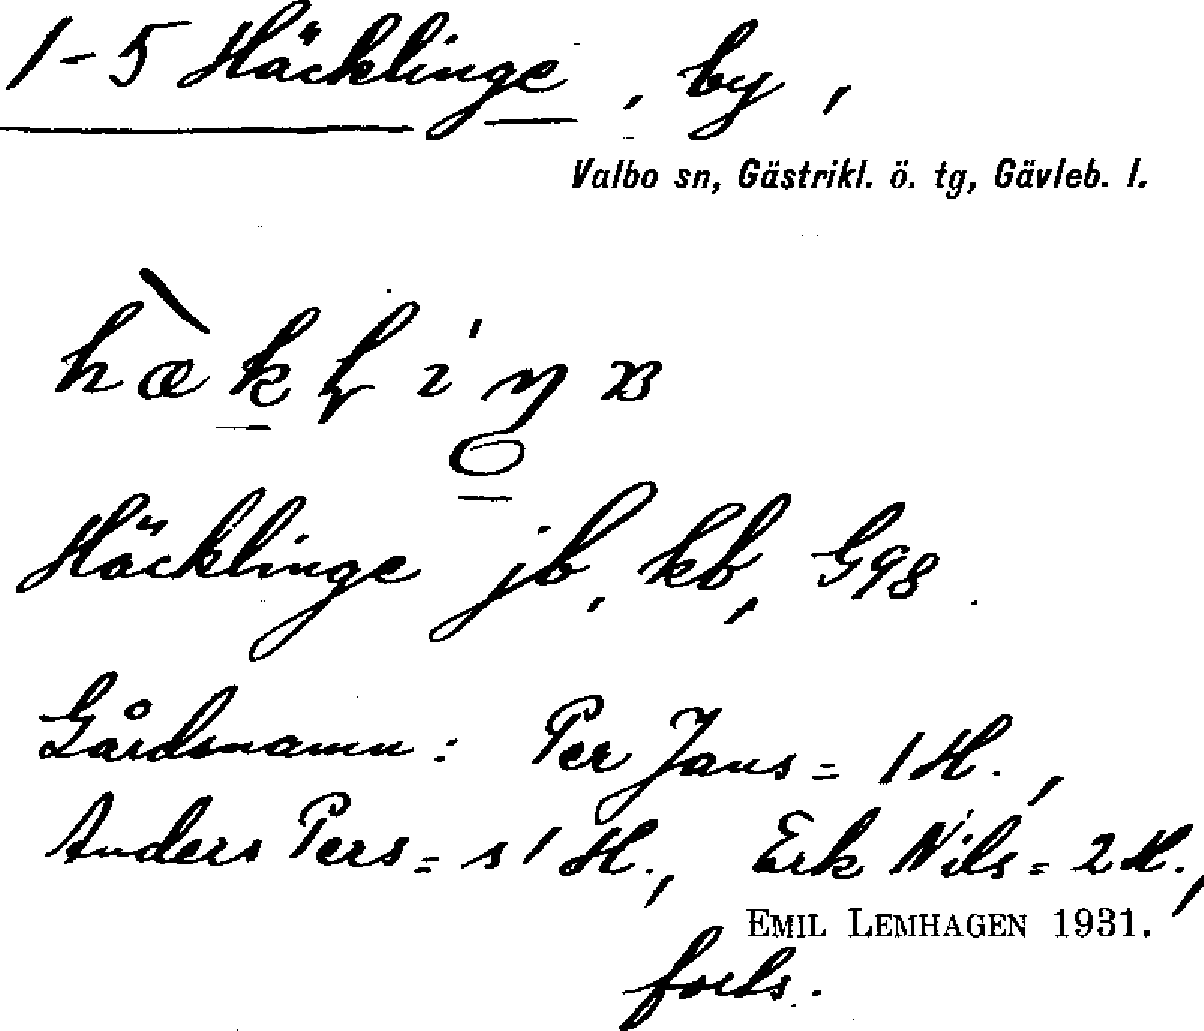 1-5 Häcklinge, by,
Valbo sn, Gästrikl. ö. tg, Gävleb. l.
Häcklinge jb, kb, G98.
Gårdsnamn: Per Jans = 1 H.,
Anders Pers = s 1 H., Erk Nils = 2 H.,
EMIL LEMHAGEN 1931.
forts.